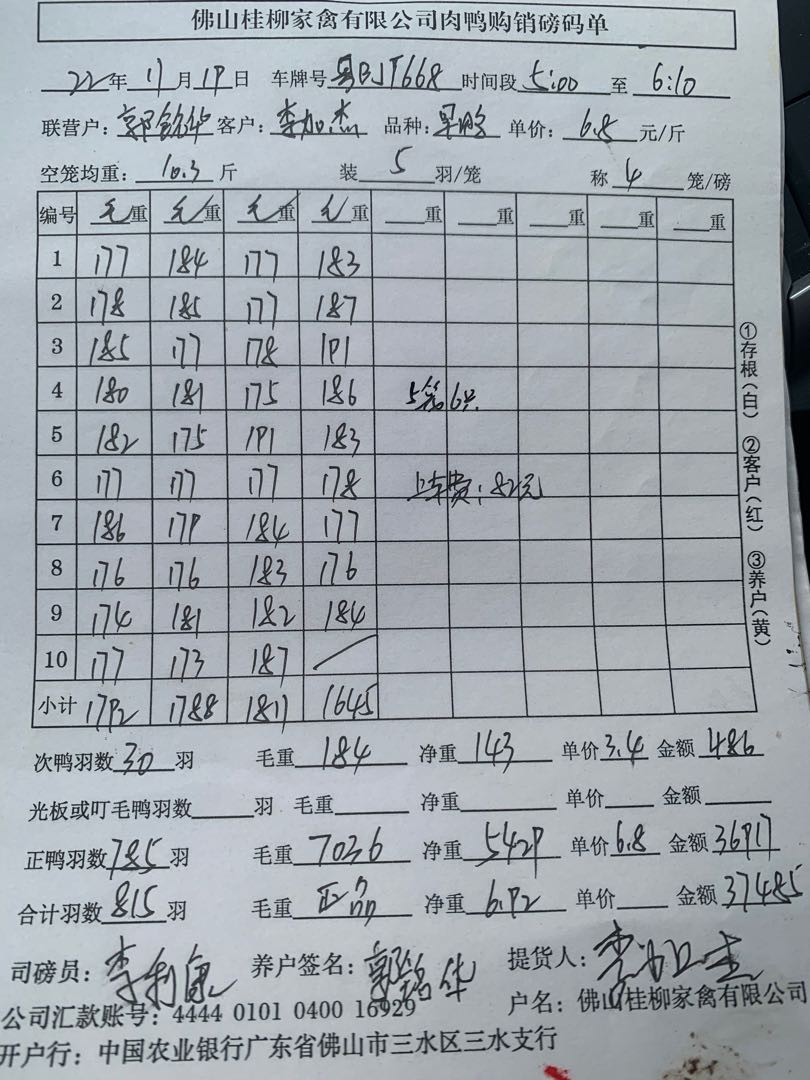 佛山桂柳家禽有限公司肉鸭购销磅码单
22年11月19日 车牌号粤BJT668 时间段5:00至6:10
联营户:郭铭华 客户:李加杰 品种: 单价:6.8元/斤
空笼均重:10.3斤 装5羽/笼 称4笼/磅
编号 毛重 毛重 毛重 毛重 重 重 重 重 重
1 177 184 177 183
2 178 185 177 187
3 185 177 178 191
4 180 181 175 186 5笼6只
5 182 175 191 183
6 177 177 177 178 上车费:82元
7 186 179 184 177
8 176 176 183 176
9 174 181 182 184
10 177 173 187 /
小计 1792 1788 1811 1645
次鸭羽数30羽 毛重184 净重143 单价3.4 金额486
光板或叮毛鸭羽数 羽 毛重 净重 单价 金额
正鸭羽数785羽 毛重7036 净重5429 单价6.8 金额36917
合计羽数815羽 毛重正品 净重6.92 单价 金额37485
司磅员:李利康 养户签名:郭铭华 提货人:李加杰
公司汇款账号:4444 0101 0400 16929 户名:佛山桂柳家禽有限公司
开户行:中国农业银行广东省佛山市三水区三水支行
①存根(白) ②客户(红) ③养户(黄)